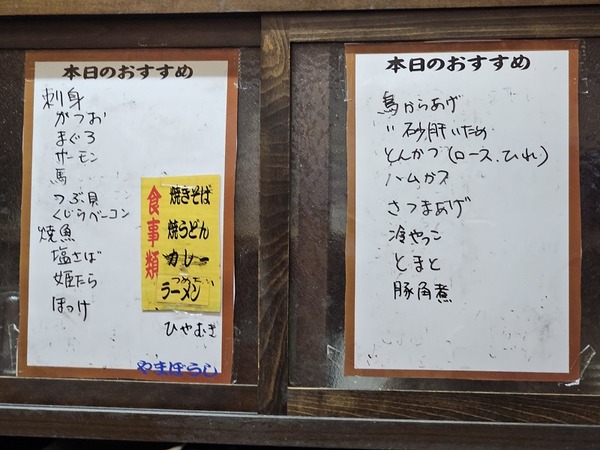 本日のおすすめ
刺身
かつお
まぐろ
サーモン
馬
つぶ貝
くじらベーコン
焼魚
塩さば
姫たら
ほっけ
食事類
焼きそば
焼うどん
カレー
つめたい
ラーメン
ひやむぎ
やまぼうし
本日のおすすめ
鳥からあげ
〃砂肝いため
とんかつ(ロース、ひれ)
ハムカス
さつまあげ
冷やっこ
とまと
豚角煮